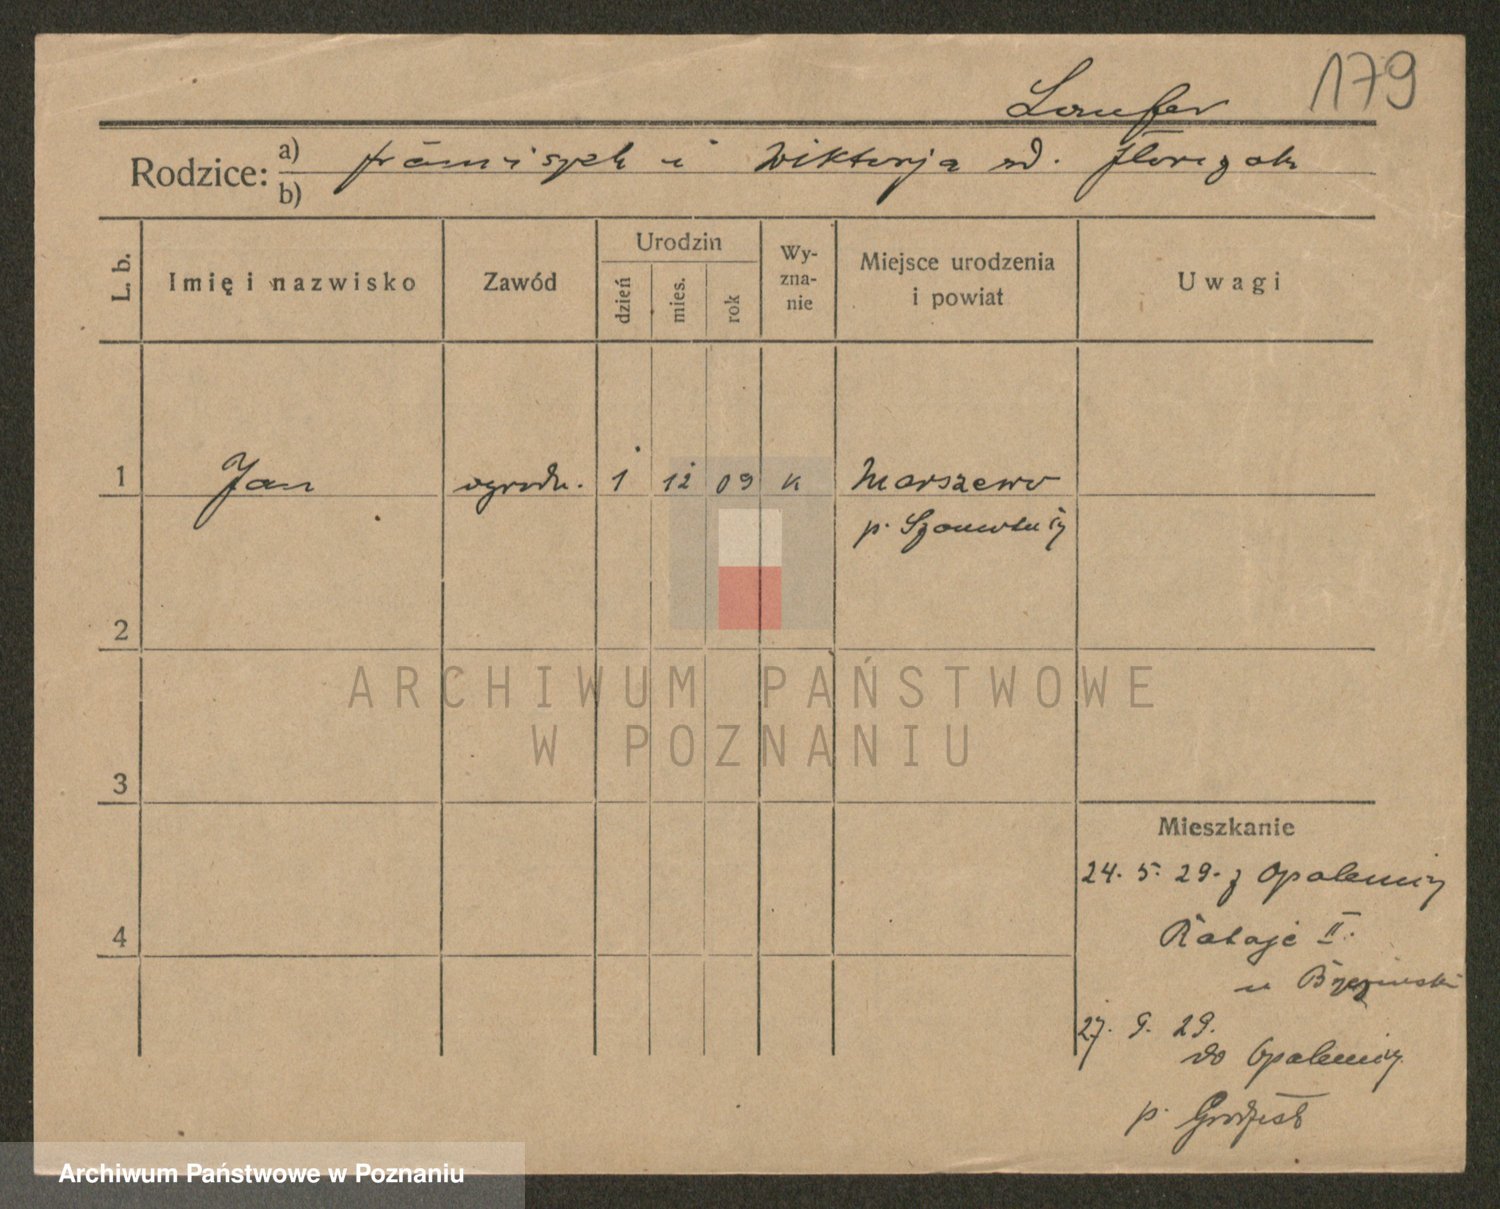 179
Laufer
Rodzice: a) Franciszek i Wiktorja zd. Florczak
b)
L. b.
Imię i nazwisko
Zawód
Urodzin
dzień
mies.
rok
Wy-
zna-
nie
Miejsce urodzenia
i powiat
Uwagi
1 Jan ogrodn. 1 12 09 k Marszewo
p. Szamotuły
2
3
4
Mieszkanie
24. 5. 29. z Opalenicy
Rataje II.
u Brzeziński
27. 9. 29.
do Opalenicy
p. Grodzisk
ARCHIWUM PAŃSTWOWE
W POZNANIU
Archiwum Państwowe w Poznaniu